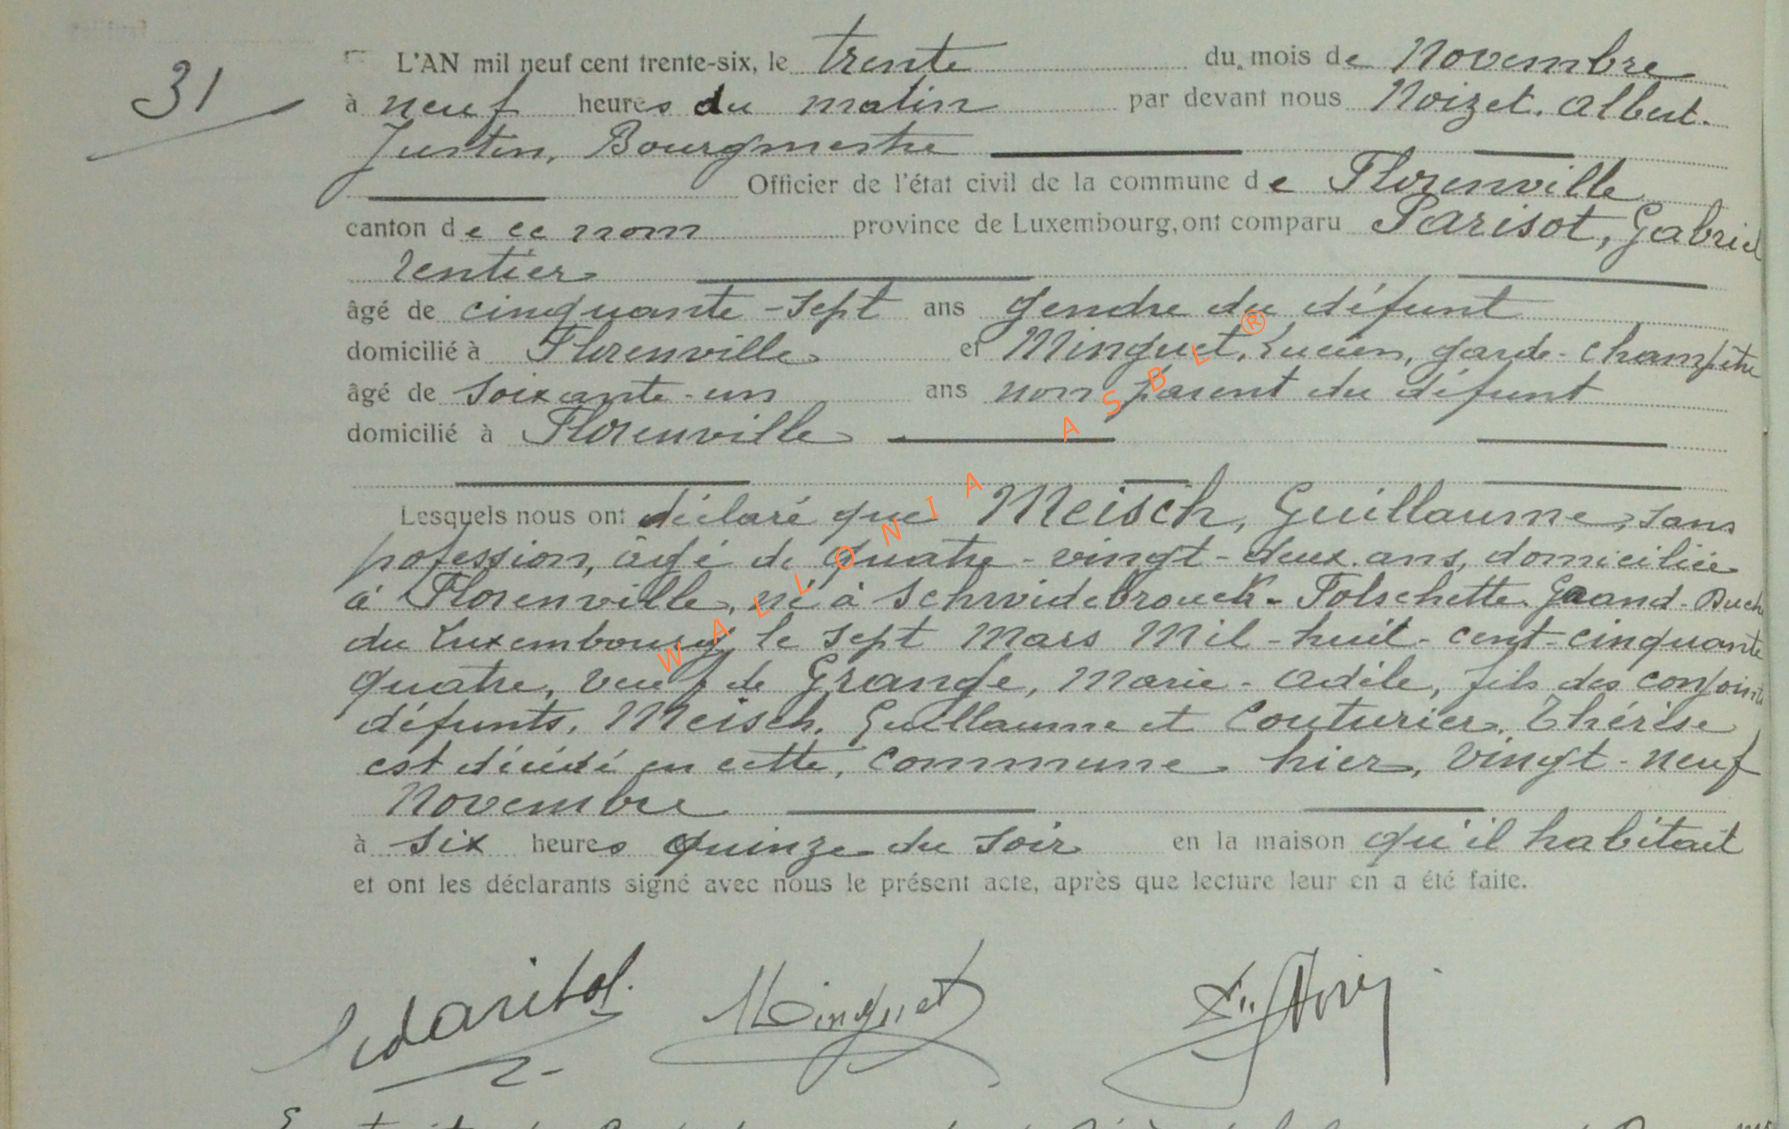 31
L'AN mil neuf cent trente-six, le trente du mois de Novembre
à neuf heures du matin par devant nous Noizet. Albert.
Justin, Bourgmestre
Officier de l'état civil de la commune de Florenville
canton de ce nom province de Luxembourg, ont comparu Parisot, Gabriel
rentier
âgé de cinquante-sept ans gendre du défunt
domicilié à Florenville et Minguet, Lucien, garde-champêtre
âgé de soixante-un ans non parent du défunt
domicilié à Florenville
Lesquels nous ont déclaré que Meisch, Guillaume, sans
pofession, âgé de quatre-vingt-deux ans, domiciliée
à Florenville, né à Schwidebrouck-Folschette Grand-Duché
du Luxembourg le sept Mars Mil-huit-cent-cinquante
quatre, veuf de Grange, Marie-Adèle, fils des conjoints
défunts, Meisch, Guillaume et Couturier, Thérèse
est décédé en cette, commune hier, vingt-neuf
Novembre
à six heures quinze du soir en la maison qu'il habitait
et ont les déclarants signé avec nous le présent acte, après que lecture leur en a été faite.
Parisot. Minguet
WALLONIA ASBL ®